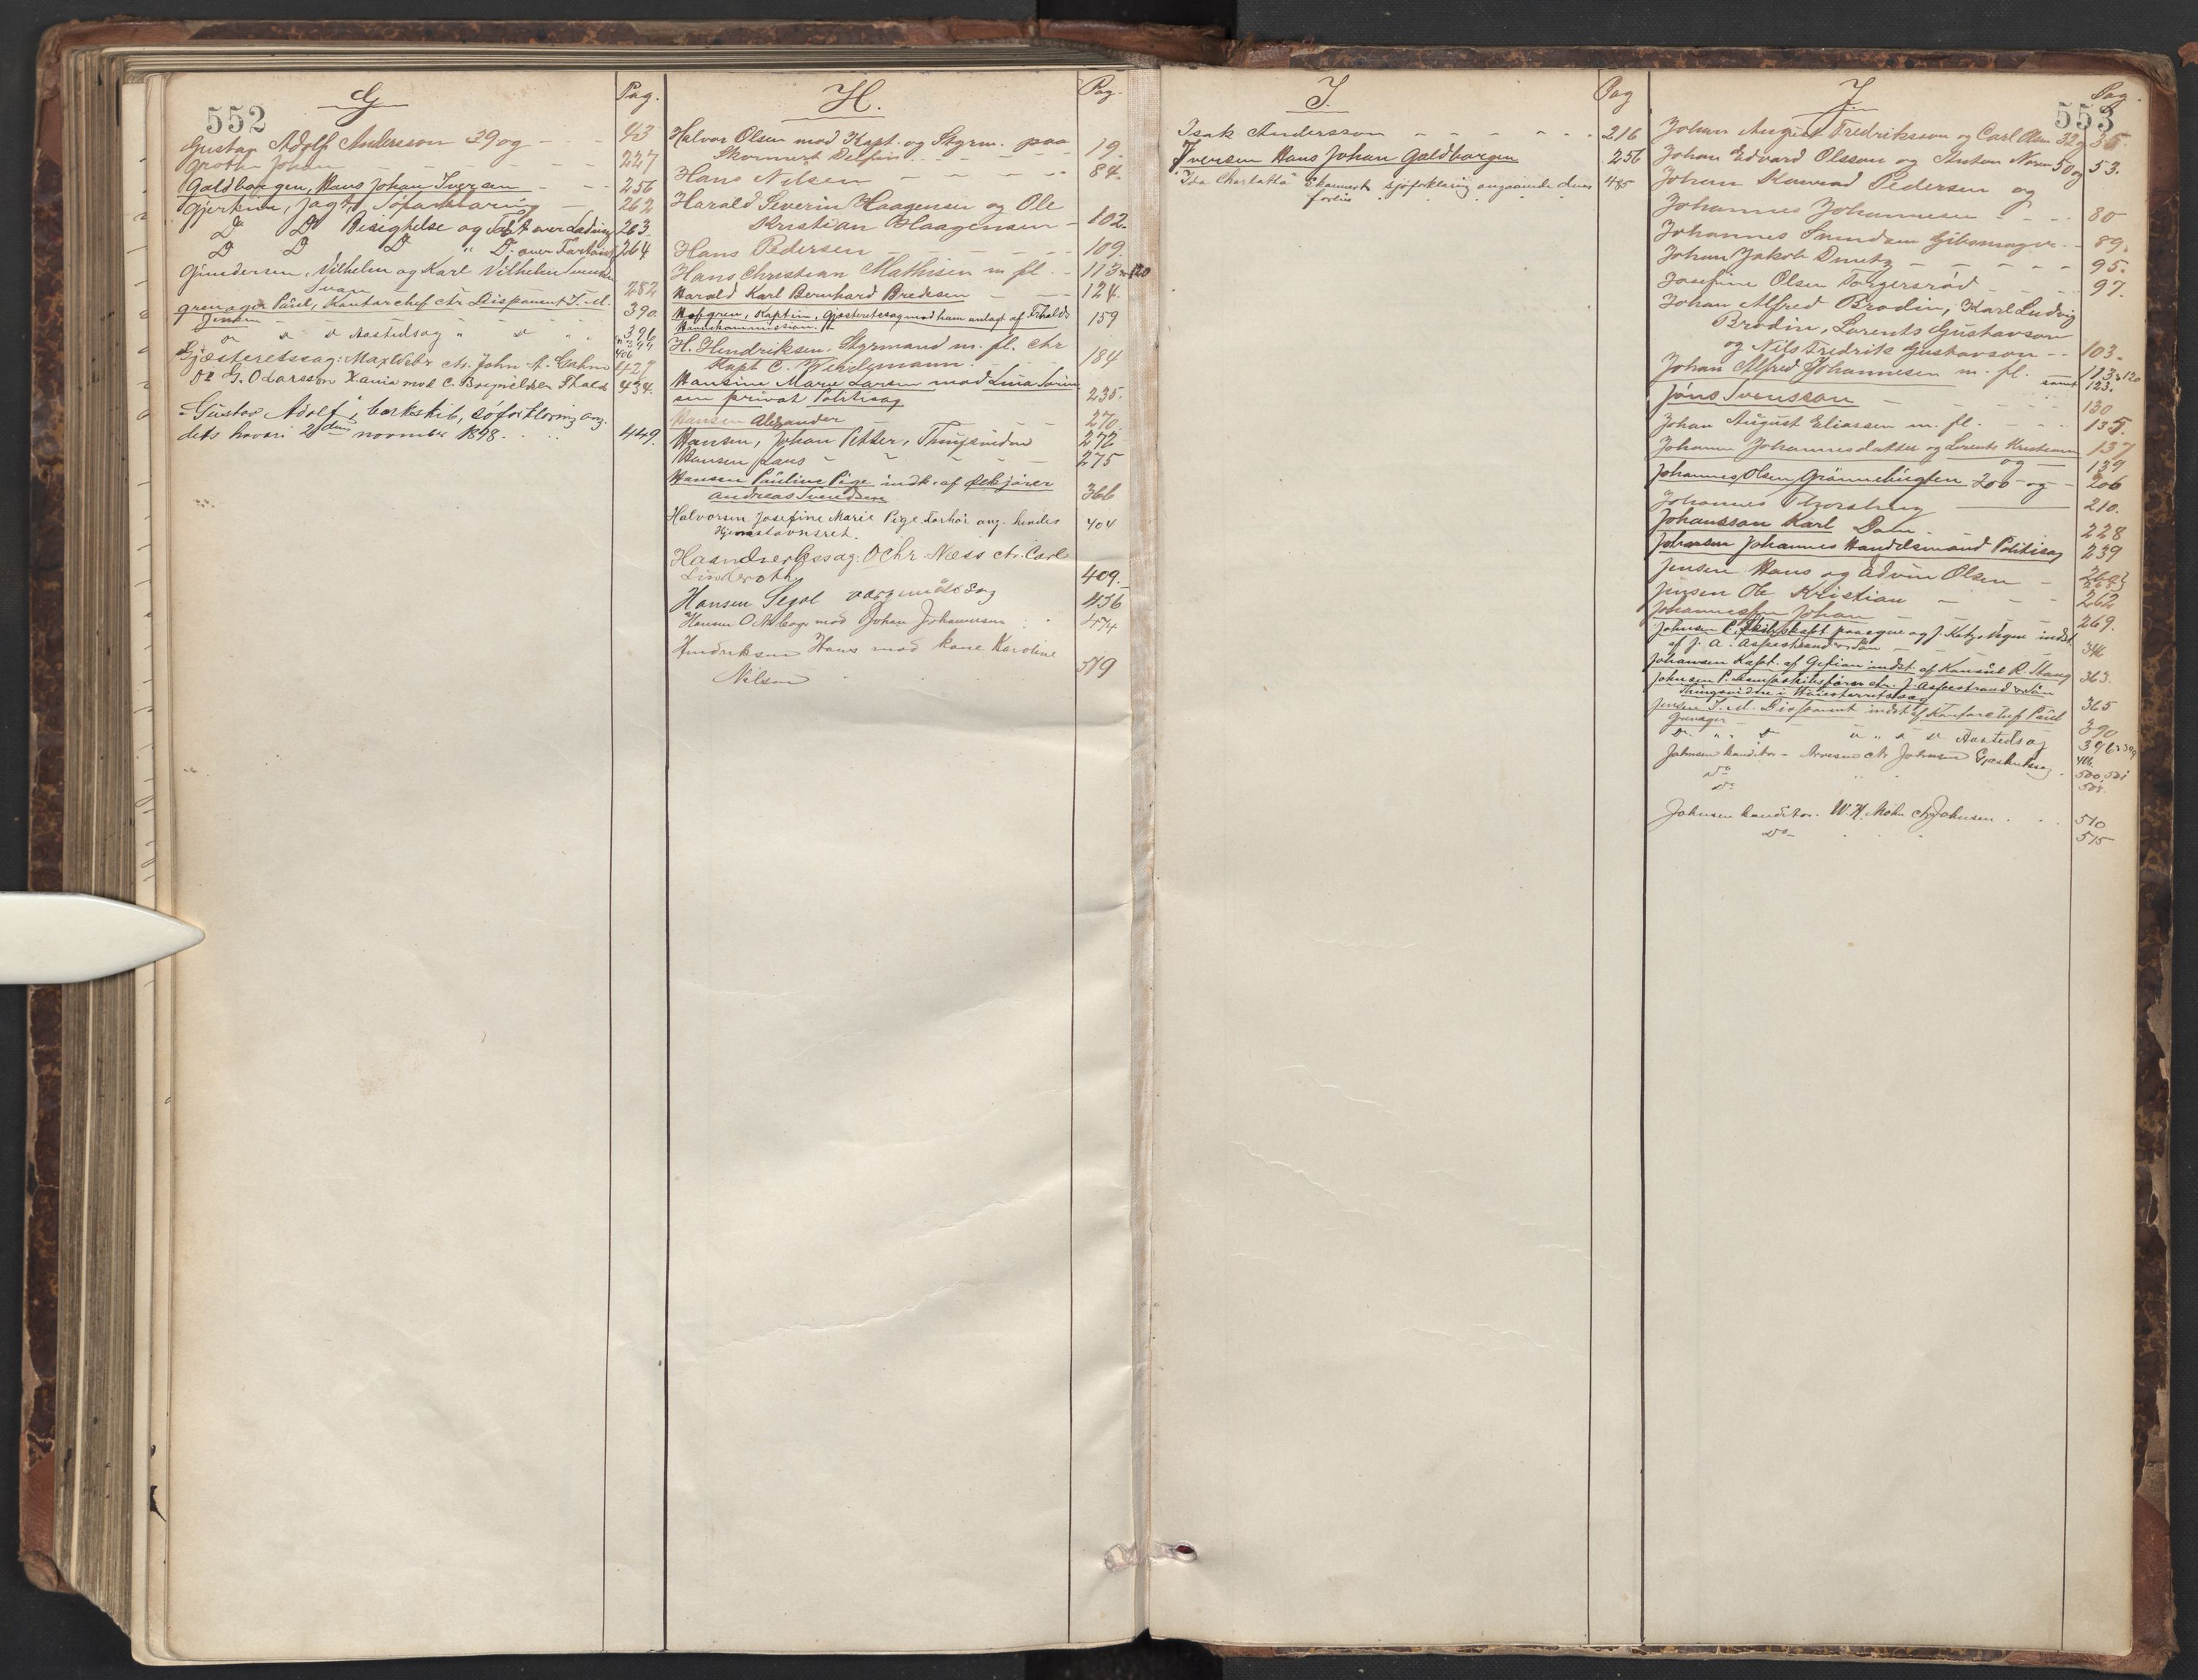 552
G
Pag.
Gustav Adolf Andersson 39 og - - 43
Groth Johan - - - 227
Galdbargen, Hans Johan Iversen - - 256
Gjertine, Jagt, Søforklaring - 262
Do Do Besigtelse og Taxt over Ladning 263
Do Do Do " Do over Fartøiet 264
Gundersen, Vilhelm og Karl Vilhelm Svendsen
Svan - 282
Grenager Paul, Kontorchef ctr. Disponent J. M.
Jensen 390
Do Do Do Aastedsag " Do " " 396
399
406
Gjæsteretssag: Max Weber ctr. John A. Grahm 427
Do G. Olarsson Xania mod C. Boymelsen Fhald 434.
"Gustav Adolf", barkskib, søforklaring ang.
dets havari 2den november 1898. . . . 449.
H.
Pag.
Halvor Olsen mod Kapt. og Styrm. paa
Skonnert Delfin . . - - - 19.
Hans Nilsen - - - - - 84.
Harald Severin Haagensen og Ole
Kristian Haagensen - 102.
Hans Pedersen - - - - 109.
Hans Christian Mathisen m. fl. - 113 & 120
Harald Karl Bernhard Bredesen - - - 124.
Hofgren, Kaptein, Gjæsteretssag mod ham anlagt af Fhalds
Havnekommission. 159
H. Hendriksen, Styrmand m. fl. ctr
Kapt C. Wehelymann. - 184
Hansine Marie Larsen mod Lina Sørin
sen privat Politisag 235.
Hansen Alexander - - - 270.
Hansen, Johan Petter, Thingsvidne 272
Hansen Lars - - - - - 275
Hansen Pauline Pige indk. af Ølkjører
Andreas Svendsen 366
Halvorsen Josefine Marie Pige. Forhør ang. hendes
Hjemstavnsret. 404
Haandverkssag: O Chr. Næss ctr. Carl
Linderoth 409.
Hansen Segol værgemaalssag 456
Hansen O mod Johan Johannesen . . 474
Hendriksen Hans mod kone Karoline
Nilsen . . . 519
I.
Pag
Isak Andersson - - - - - - . 216
Iversen Hans Johan Galdbargen 256
"Ida Charlotta" skonnert sjøforklaring angaaende dens
forlis . . . . . 485
553
J.
Pag.
Johan August Fredriksson og Carl Olsen 32 og 35.
Johan Edvard Olsson og Anton Noren 50 og 53.
Johan Konrad Pedersen og
Johannes Johannesen - - - 80
Johannes Svendsen Gibsmager - - 89.
Johan Jakob Dmetz - - - - - 95.
Josefine Olsen Torgersrød - - - 97.
Johan Alfred Brodin, Karl Ludvig
Brodin, Lorents Gustavson
og Nils Fredrik Gustavson - - 103.
Johan Alfred Johannesen m. fl. samt 113 & 120
123.
Jöns Svensson - - - - - 130
Johan August Eliassen m. fl. - - - 135.
Johanne Johannesdatter og Lorents Kristiansen 137
og - 139
Johannes Olsen Grønnebugten 200 og - 206
Johannes Thorsberg - 210.
Johansson Karl Dom 228
Johansen Johannes Handelsmand Politisag 239
Jensen Hans og Edvin Olsen -
Jensen Ole Kristian - - - 262
Johannessen Johan - - - - 269.
Johnsen P. Skibskapt. paa egne og J. Katz's Vegne indst.
af J. A. Aspestrand & Søn - 346
Johansen Kapt. af Gefion indst. af Konsul R. Stang 363.
Johnsen P. Dampskibsfører ctr. J. Aspestrand & Søn
Thingsvidne i Høiesteretssag 365
Jensen J. M. Disponent indst. af Kontorchef Paul
Grenager - 390
Do " " Do " " " Do Aastedsag 396 & 399
406.
Johnsen konditor - Arvesen ctr Johnsen Gjæsteretssag - 500, 501
Do " . 504.
Do
Johnsen konditor. W. H. Mohn ctr Johnsen . . . 510
Do - . . . 515